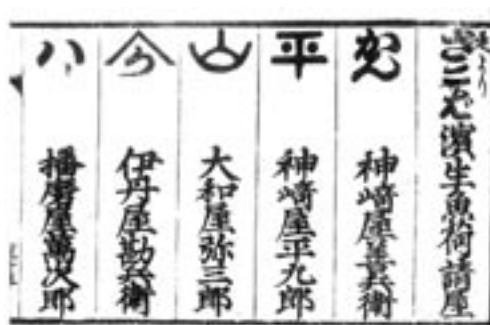 より
濱生魚荷請屋
神﨑屋善兵衛
平 神﨑屋平九郎
大和屋弥三郎
伊丹屋勘兵衛
ハ 播磨屋萬次郎